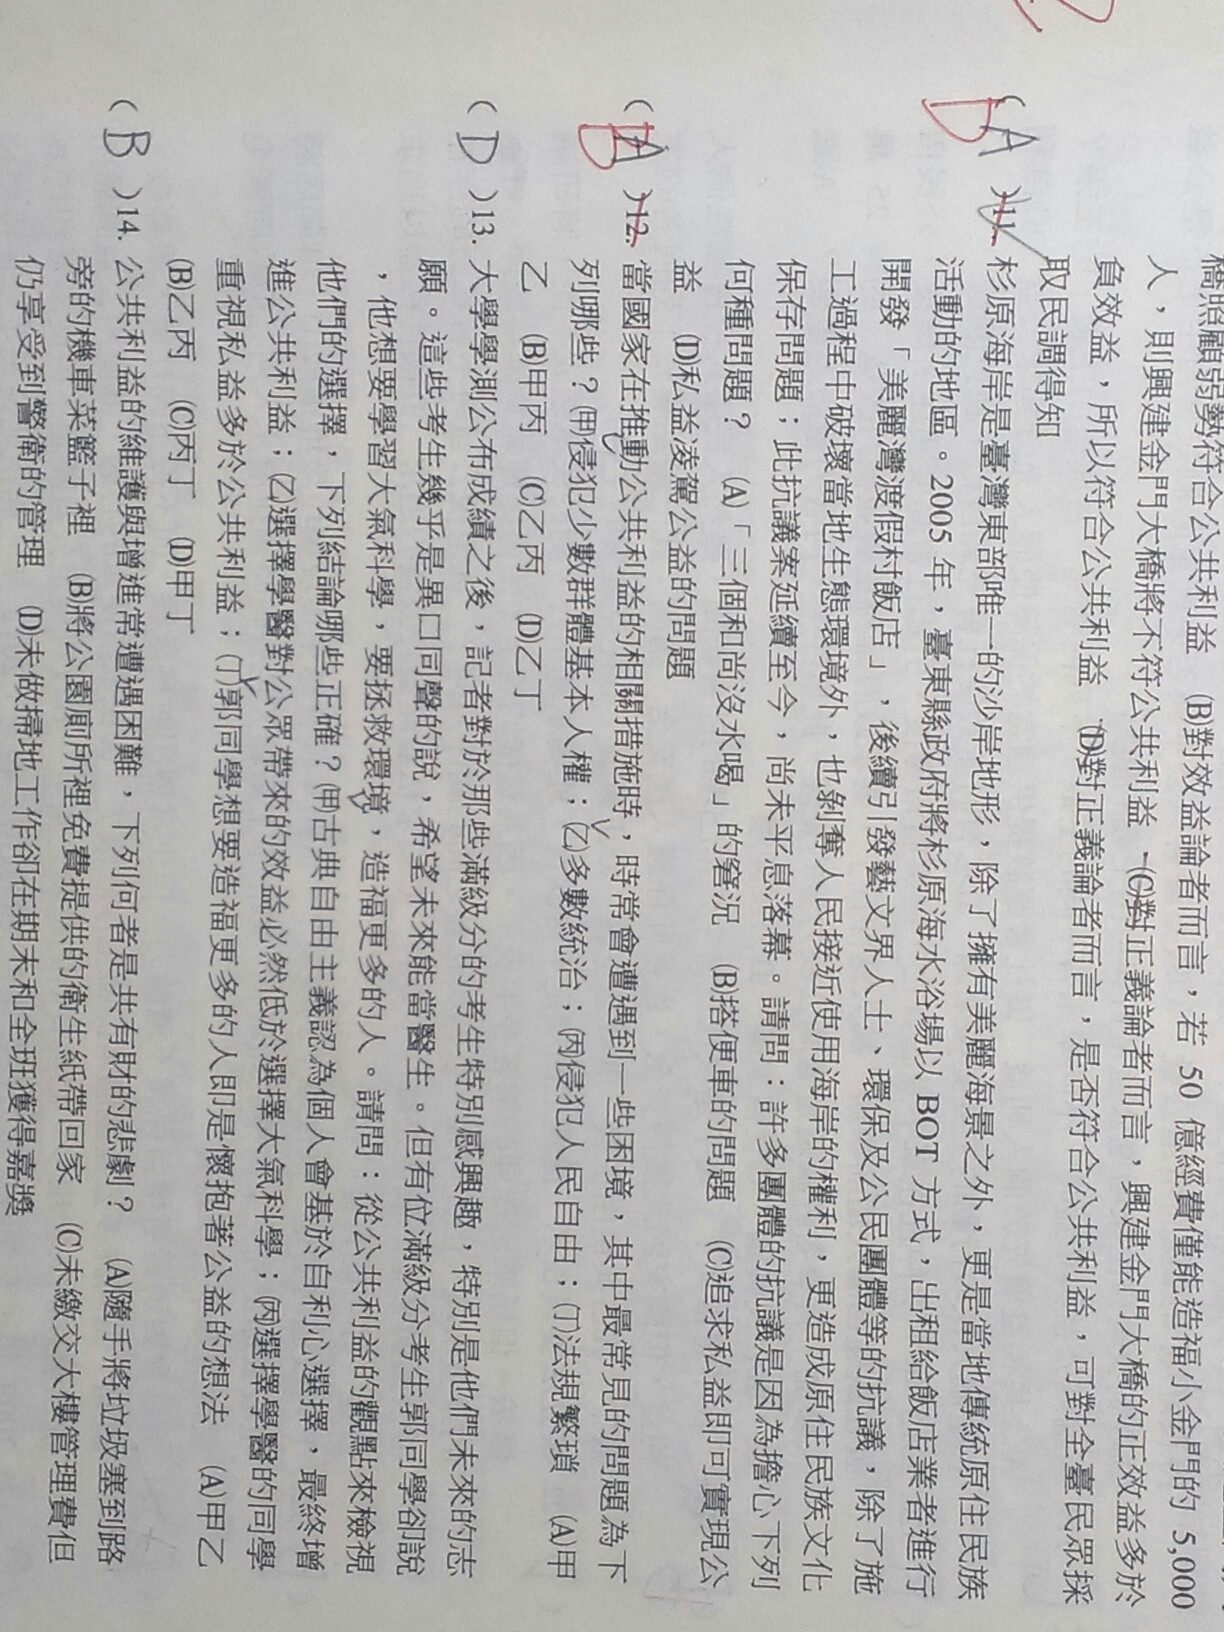 橋照顧弱勢符合公共利益 (B)對效益論者而言，若 50 億經費僅能造福小金門的 5,000
人，則興建金門大橋將不符公共利益 (C)對正義論者而言，興建金門大橋的正效益多於
負效益，所以符合公共利益 (D)對正義論者而言，是否符合公共利益，可對全臺民眾採
取民調得知
( A D )11. 杉原海岸是臺灣東部唯一的沙岸地形，除了擁有美麗海景之外，更是當地傳統原住民族
活動的地區。2005 年，臺東縣政府將杉原海水浴場以 BOT 方式，出租給飯店業者進行
開發「美麗灣渡假村飯店」，後續引發藝文界人士、環保及公民團體等的抗議，除了施
工過程中破壞當地生態環境外，也剝奪人民接近使用海岸的權利，更造成原住民族文化
保存問題；此抗議案延續至今，尚未平息落幕。請問：許多團體的抗議是因為擔心下列
何種問題？ (A)「三個和尚沒水喝」的窘況 (B)搭便車的問題 (C)追求私益即可實現公
益 (D)私益凌駕公益的問題
( A B )12. 當國家在推動公共利益的相關措施時，時常會遭遇到一些困境，其中最常見的問題為下
列哪些？(甲)侵犯少數群體基本人權；(乙)多數統治；(丙)侵犯人民自由；(丁)法規繁瑣 (A)甲
乙 (B)甲丙 (C)乙丙 (D)乙丁
( D )13. 大學學測公布成績之後，記者對於那些滿級分的考生特別感興趣，特別是他們未來的志
願。這些考生幾乎是異口同聲的說，希望未來能當醫生。但有位滿級分考生郭同學卻說
，他想要學習大氣科學，要拯救環境，造福更多的人。請問：從公共利益的觀點來檢視
他們的選擇，下列結論哪些正確？(甲)古典自由主義認為個人會基於自利心選擇，最終增
進公共利益；(乙)選擇學醫對公眾帶來的效益必然低於選擇大氣科學；(丙)選擇學醫的同學
重視私益多於公共利益；(丁)郭同學想要造福更多的人即是懷抱著公益的想法 (A)甲乙
(B)乙丙 (C)丙丁 (D)甲丁
( B )14. 公共利益的維護與增進常遭遇困難，下列何者是共有財的悲劇？ (A)隨手將垃圾塞到路
旁的機車菜籃子裡 (B)將公園廁所裡免費提供的衛生紙帶回家 (C)未繳交大樓管理費但
仍享受到警衛的管理 (D)未做掃地工作卻在期末和全班獲得嘉獎